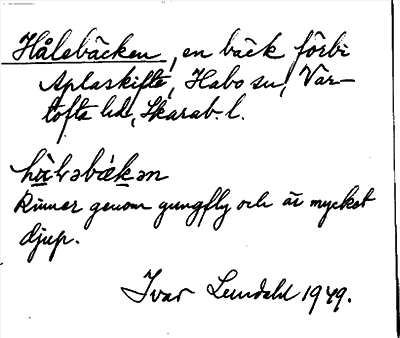 Hålebäcken, en bäck förbi
Aplaskifte, Habo sn, Var-
tofta hd, Skarab. l.
hὰlεbäkən
Rinner genom gungfly och är mycket
djup.
Ivar Lundahl 1949.